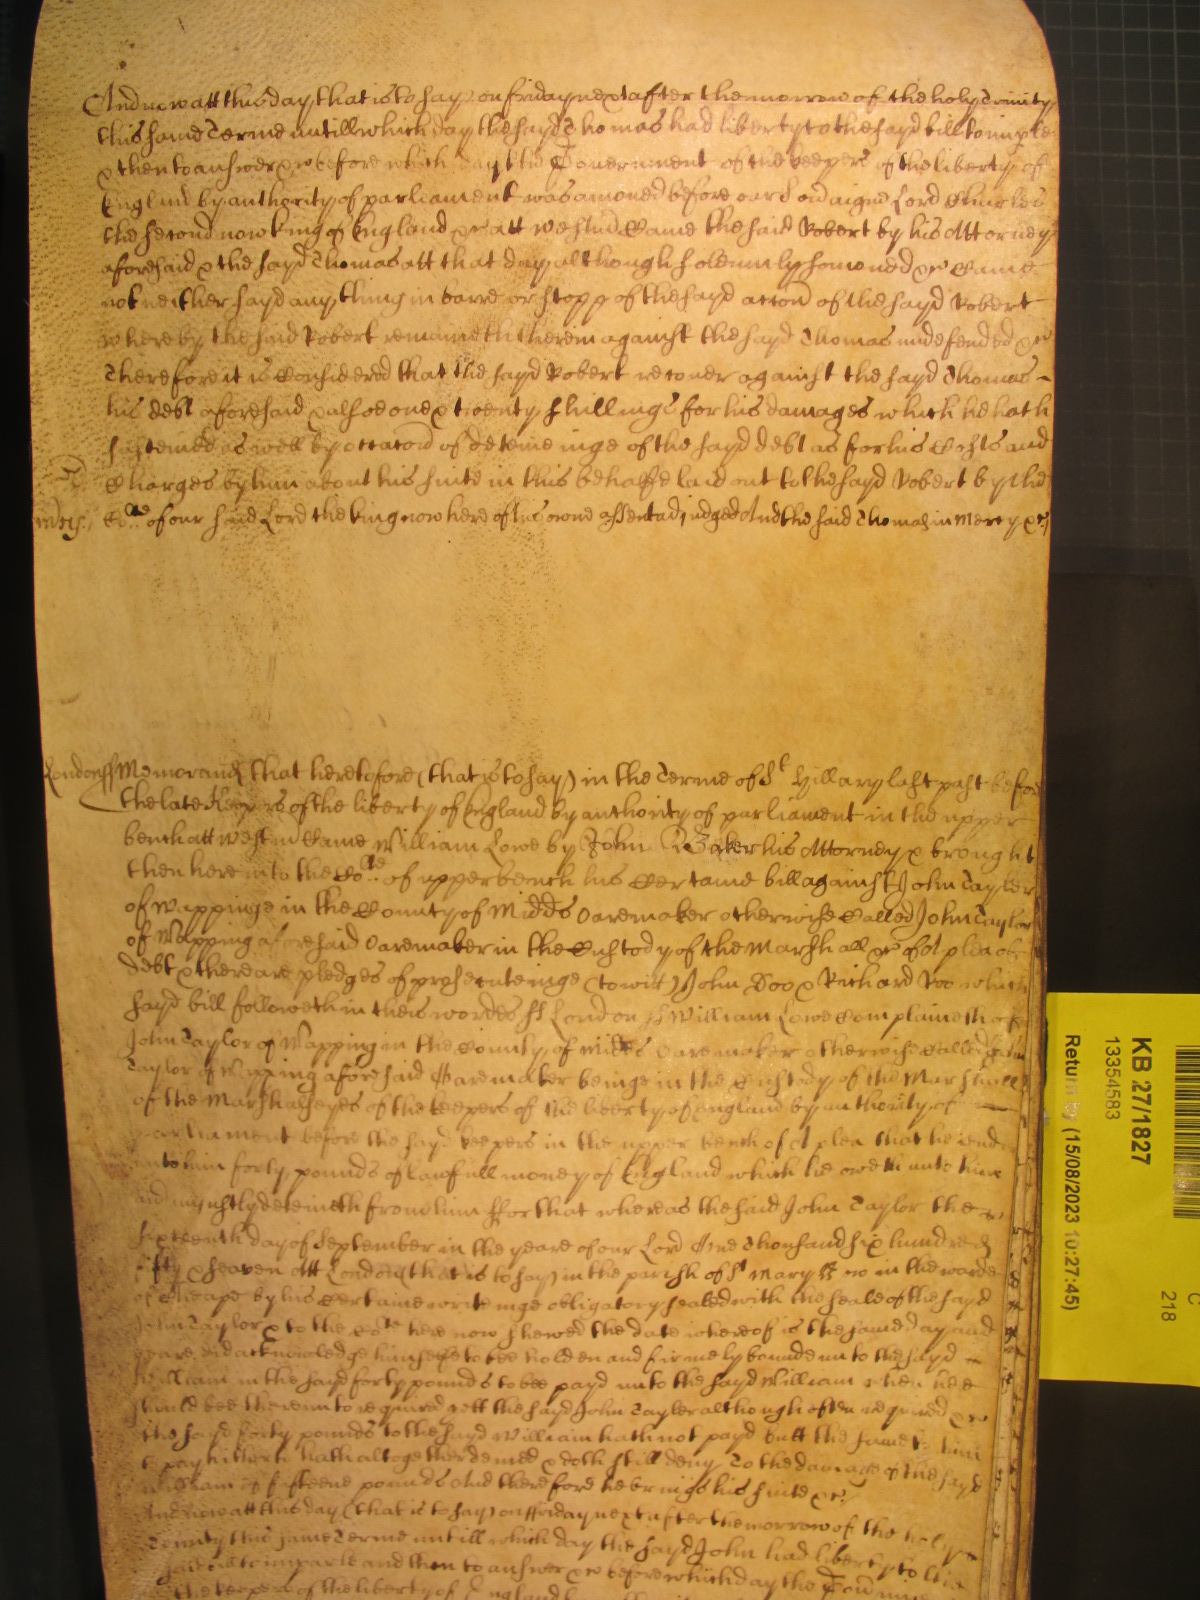 And now att this day that is to say on friday next after the morrow of the holy Trinity
this same Terme untill which day the sayd Thomas had liberty to the sayd bill to imple
& then to answer &c before which day the Government of the keepers of the liberty of
England by authority of parliament was amoved before our Lord Charles
the second now king of England &c att Westmr Came the said Robert by his Attorney
aforesaid & the sayd Thomas att that day although solemnly somoned &c Came
not neither sayd any thing in barre or stopp of the sayd accon of the sayd Robert
whereby the said Robert remaineth therein against the sayd Thomas undefended &c
Therefore it is Considered that the sayd Robert recover against the sayd Thomas
his debt aforesaid & alsoe one & twenty shillings for his damages which he hath
susteined as well by occacon of deteineinge of the sayd debt as for his Costs and
Charges by him about his suite in this behalfe laid out to the sayd Robert by the
Cote of our said Lord the king now here of his owne assent adjudged And the said Thomas in Mercy &c
London ss Memorand that heretofore (that is to say) in the Terme of St Hillary last past before
the late Keepers of the liberty of England by authority of parliament in the upper
bench att Westmr Came William Lowe by John Baker his Attorney & brought
then here into the Cote of upper bench his Certaine bill against John Tayler
of Wappinge in the County of Midds Oaremaker otherwise Called John Taylor
of Wapping aforesaid Oaremaker in the Custody of the Marshall &c of A plea of
debt & there are pledges of prosecuteinge (to witt) John Doo & Richard Roo which
sayd bill followeth in theis wordes ss London ss William Lowe Complaineth of
John Taylor of Wapping in the County of Midds Oaremaker otherwise Called John
Taylor of Wapping aforesaid Oaremaker beinge in the Custody of the Marshall
of the Marshalseyes of the keepers of the liberty of England by authority of
parliament before the sayd keepers in the upper bench of A plea that he rend
unto him forty pounds of lawfull money of England which he oweth unto him
and unjustly deteineth from him ffor that whereas the said John Taylor the
sixteenth day of September in the yeare of our Lord One Thousand six hundred
fifty & seaven Att London (that is to say) in the parish of St Mary Bow in the warde
of Cheape by his Certaine writeinge obligatory sealed with the seale of the sayd
John Taylor & to the Cote here now shewed the date whereof is the same day and
yeare did acknowledge himselfe to bee holden and firmely bounde unto the sayd
William in the sayd forty pounds to bee payd unto the sayd William when hee
should bee thereunto required yett the sayd John Tayler although often required &c
the sayd forty pounds to the sayd William hath not payd butt the same to him
to pay hitherto hath altogether denied & doth still deny To the damage of the sayd
William of fifteene pounds And therefore he brings his suite &c
And now att this day (that is to say) on ffriday next after the morrow of the holy
Trinity this same Terme untill which day the sayd John had liberty to the
said bill to imparle and then to answer &c before which day the Governm
the keepers of the liberty of England
KB 27/1827
13354583
Return by (15/08/2023 10:27:45)
C
218